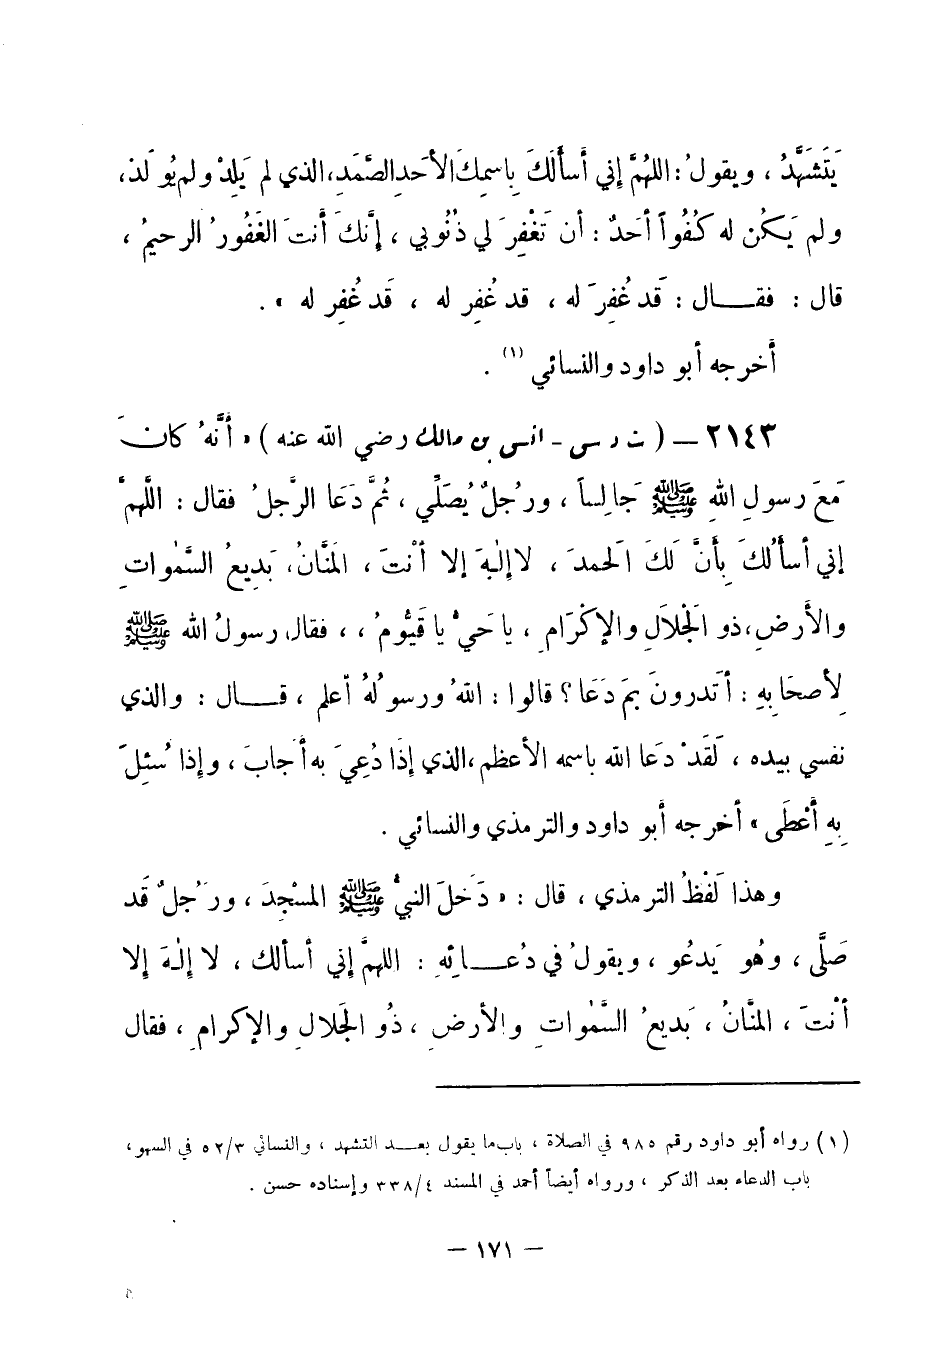 يَتَشَهَّدُ ، ويقولُ : اللهُمَّ إني أسأَلكَ بِاسمِكَ الأحَدِ الصَّمَدِ ، الذي لم يَلِدْ ولم يُولَدْ ،
ولم يَكُن له كُفُواً أحَدٌ : أن تَغْفِرَ لي ذُنُوبي ، إنَّكَ أنتَ الغَفُورُ الرحيمُ ،
قال : فقــال : قَد غُفِرَ له ، قد غُفِر له ، قَد غُفِر له » .
أخرجه أبو داود والنسائي (١) .
٢١٤٣ – ( ت د س - أنس بن مالك رضي الله عنه ) « أنَّهُ كانَ
مَعَ رسولِ اللهِ ﷺ جَالِساً ، ورُجلٌ يُصَلِّي ، ثُمَّ دَعَا الرَّجلُ فقال : اللَّهمَّ
إني أسأَلُكَ بِأَنَّ لَكَ الَحمدَ ، لا إلٰهَ إلا أنْتَ ، المَنَّانُ ، بَديعُ السَّمٰواتِ
والأَرضِ ، ذو الَجْلالِ والإكْرَامِ ، يا حَيُّ يا قَيُّومُ ، ، فقال رسولُ الله ﷺ
لِأصحَابِهِ : أتَدرونَ بمَ دَعَا ؟ قالوا : اللهُ ورسولُهُ أعلم ، قــال : والذي
نفسي بيده ، لَقَدْ دَعَا الله باسمه الأعظم ، الذي إذَا دُعِيَ به أَجابَ ، وإذا سُئِلَ
بِهِ أَعْطَى » أخرجه أبو داود والترمذي والنسائي .
وهذا لَفْظُ الترمذي ، قال : « دَخلَ النبيُّ ﷺ المسْجِدَ ، ورَجُلٌ قَد
صَلَّى ، وهُو يَدعُو ، ويقولُ في دُعــائِهِ : اللهمَّ إني أسألك ، لا إلٰهَ إلا
أنْتَ ، المنَّانُ ، بَديعُ السَّمٰواتِ والأرضِ ، ذُو الجَلالِ والإكرامِ ، فقال
(١) رواه أبو داود رقم ٩٨٥ في الصلاة ، باب ما يقول بعــد التشهد ، والنسائي ٥٢/٣ في السهو ،
باب الدعاء بعد الذكر ، ورواه أيضاً أحمد في المسند ٣٣٨/٤ وإسناده حسن .
– ١٧١ –